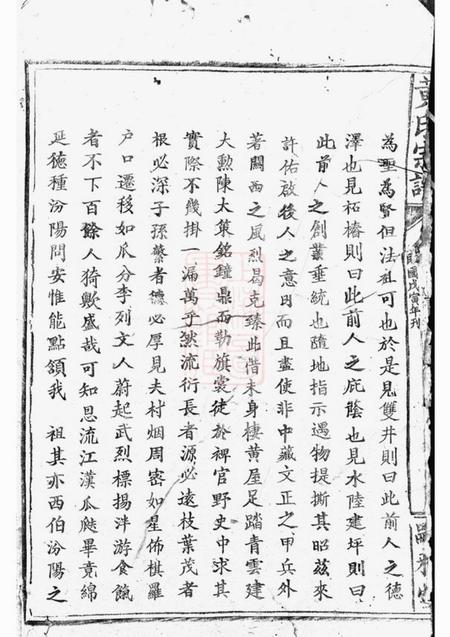 黃氏宗譜
民國戊寅年刊
為聖為賢但法祖可也於是見雙井則曰此前人之德
澤也見柘椿則曰此前人之庇蔭也見水陸建坪則曰
此前人之創業垂統也隨地指示遇物提撕其昭茲來
許佑啟後人之意因而且盡使非中藏文正之甲兵外
著關西之風烈曷克臻此惜未身棲黃屋足踏青雲建
大勳陳大策銘鐘鼎而勒旗裳徒於稗官野史中求其
實際不幾掛一漏萬乎然流衍長者源必遠枝葉茂者
根必深子孫繁者德必厚見夫村烟周密如星佈棋羅
户口遷移如瓜分李列文人蔚起武烈標揚泮游食餼
者不下百餘人猗歟盛哉可知思流江漢瓜瓞畢竟綿
延德種汾陽問安惟能點頷我 祖其亦西伯汾陽之